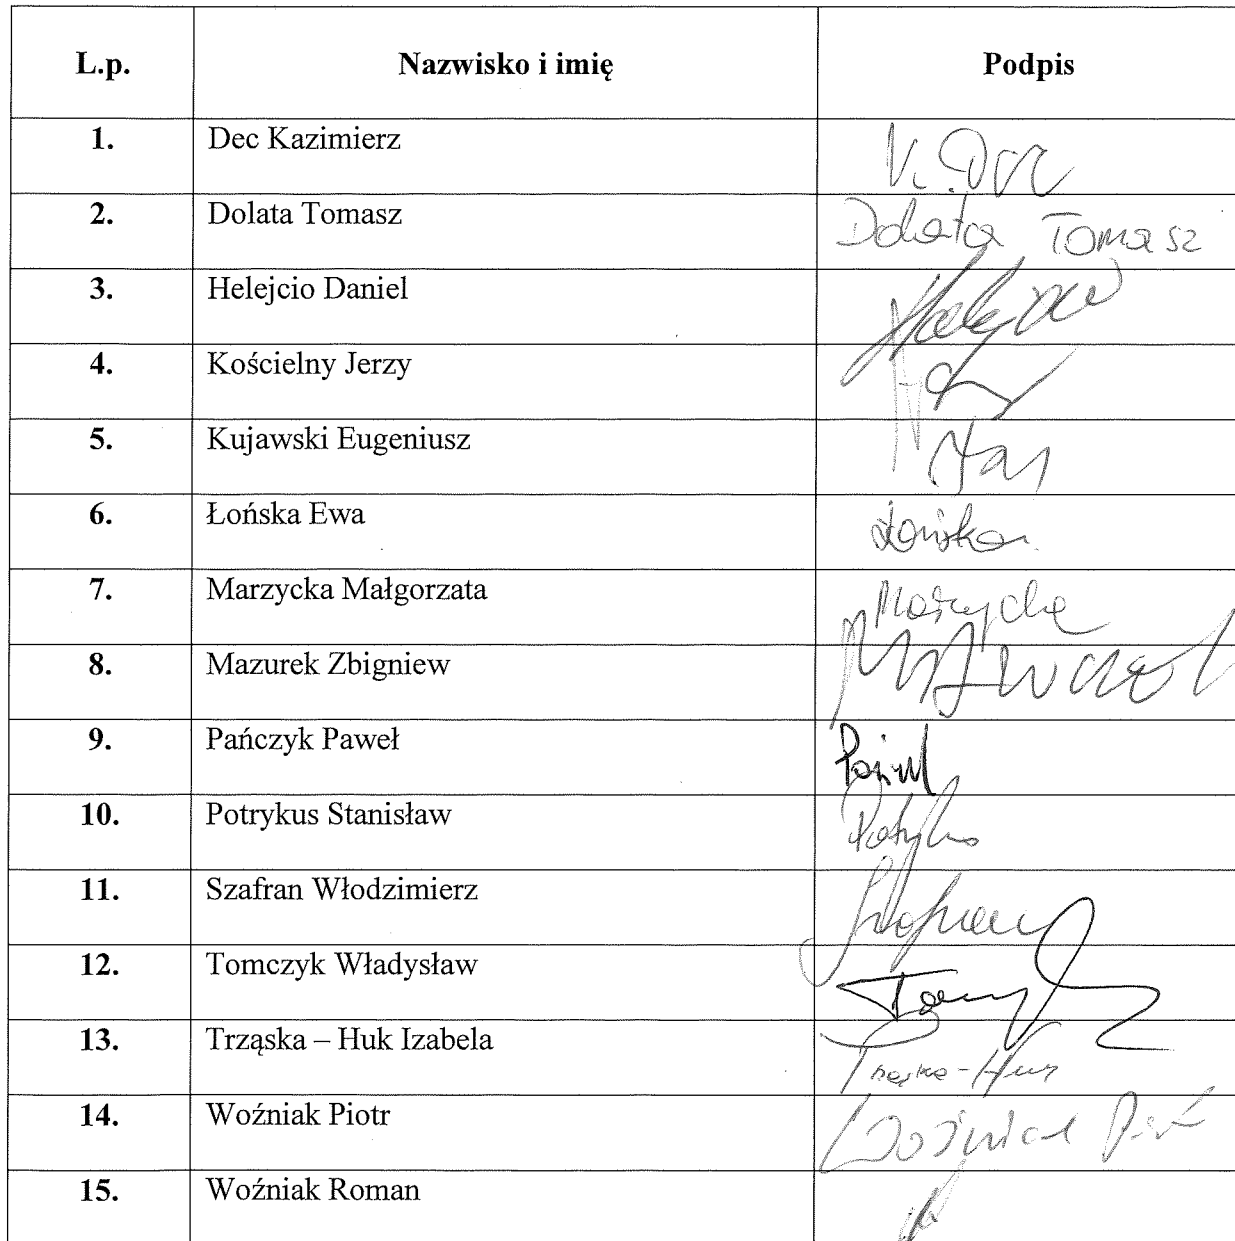 L.p. Nazwisko i imię Podpis
1. Dec Kazimierz
2. Dolata Tomasz Dolata Tomasz
3. Helejcio Daniel
4. Kościelny Jerzy
5. Kujawski Eugeniusz
6. Łońska Ewa Łońska
7. Marzycka Małgorzata
8. Mazurek Zbigniew
9. Pańczyk Paweł
10. Potrykus Stanisław
11. Szafran Włodzimierz
12. Tomczyk Władysław
13. Trząska – Huk Izabela
14. Woźniak Piotr Woźniak Piotr
15. Woźniak Roman